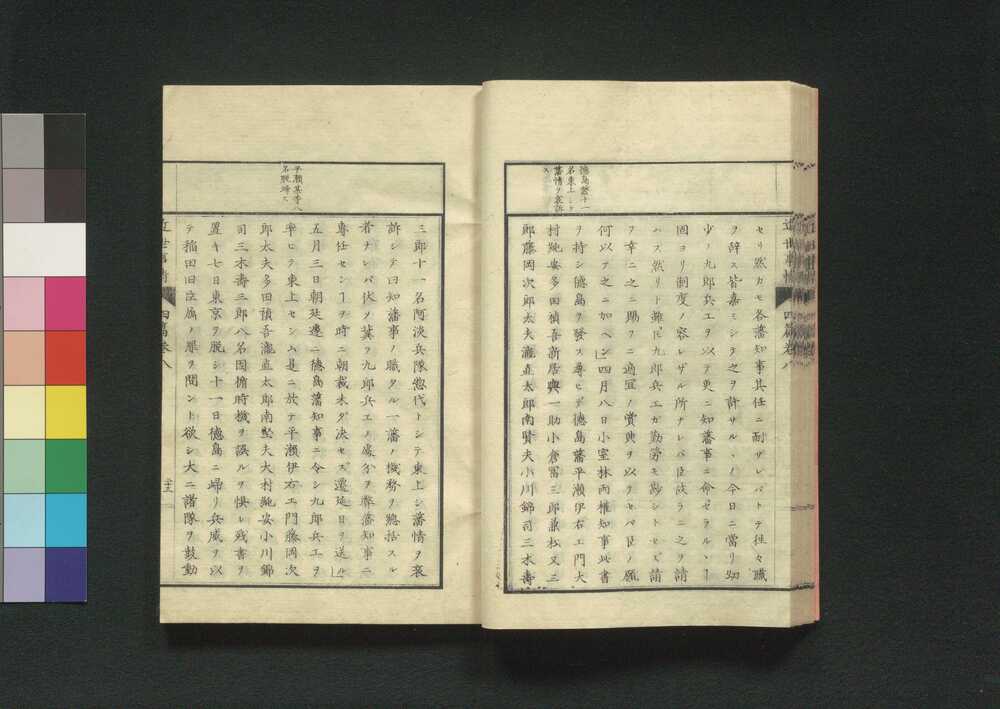 徳島藩十一
名東上シテ
藩情ヲ哀訴
ス
セリ然カモ各藩知事其任ニ耐ザレバトテ往々職
ヲ辞ス皆嘉ミシテ之ヲ許サル丶ノ今日ニ當リ幼
少ノ九郎兵エヲ以テ更ニ知藩事ニ命ゼラル丶ヿ
固ヨリ制度ノ容レザル所ナレバ臣故ラニ之ヲ請
ハス然リト雖𪜈九郎兵エガ勤勞モ尠シトセズ請
フ幸ニ之ニ賜フニ適宜ノ賞典ヲ以ラセバ臣ノ願
何以テ之ニ加ヘン」四月八日小室林両権知事此書
ヲ持シ徳島ヲ發ス尋ヒデ徳島藩平瀬伊右エ門大
村純安多田禎吾新居與一助小倉冨三郎兼松又三
郎藤岡次郎太夫瀧直太郎南賢夫小川錦司三木壽
近世事情
四篇巻八
平瀬某等八
名脱帰ス
三郎十一名阿淡兵隊惣代トシテ東上シ藩情ヲ哀
訴シテ曰知藩事ノ職タル一藩ノ機務ヲ總括スル
者ナレバ伏テ冀フ九郎兵エノ處分ヲ弊藩知事ニ
専任センヿヲ時ニ朝裁未ダ決セス遷延日ヲ送ル」
五月三日朝廷遽ニ徳島藩知事ニ令シ九郎兵エヲ
率ヒテ東上セシム是ニ於テ平瀬伊右エ門藤岡次
郎太夫多田禎吾瀧直太郎南堅夫大村純安小川錦
司三木壽三郎八名因循時機ヲ誤ルヲ惧レ残書ヲ
置キ七日東京ヲ脱シ十一日徳島ニ帰リ兵威ヲ以
テ稲田旧臣属ノ罪ヲ問ント欲シ大ニ諸隊ヲ鼓動
近世事情
四篇巻八